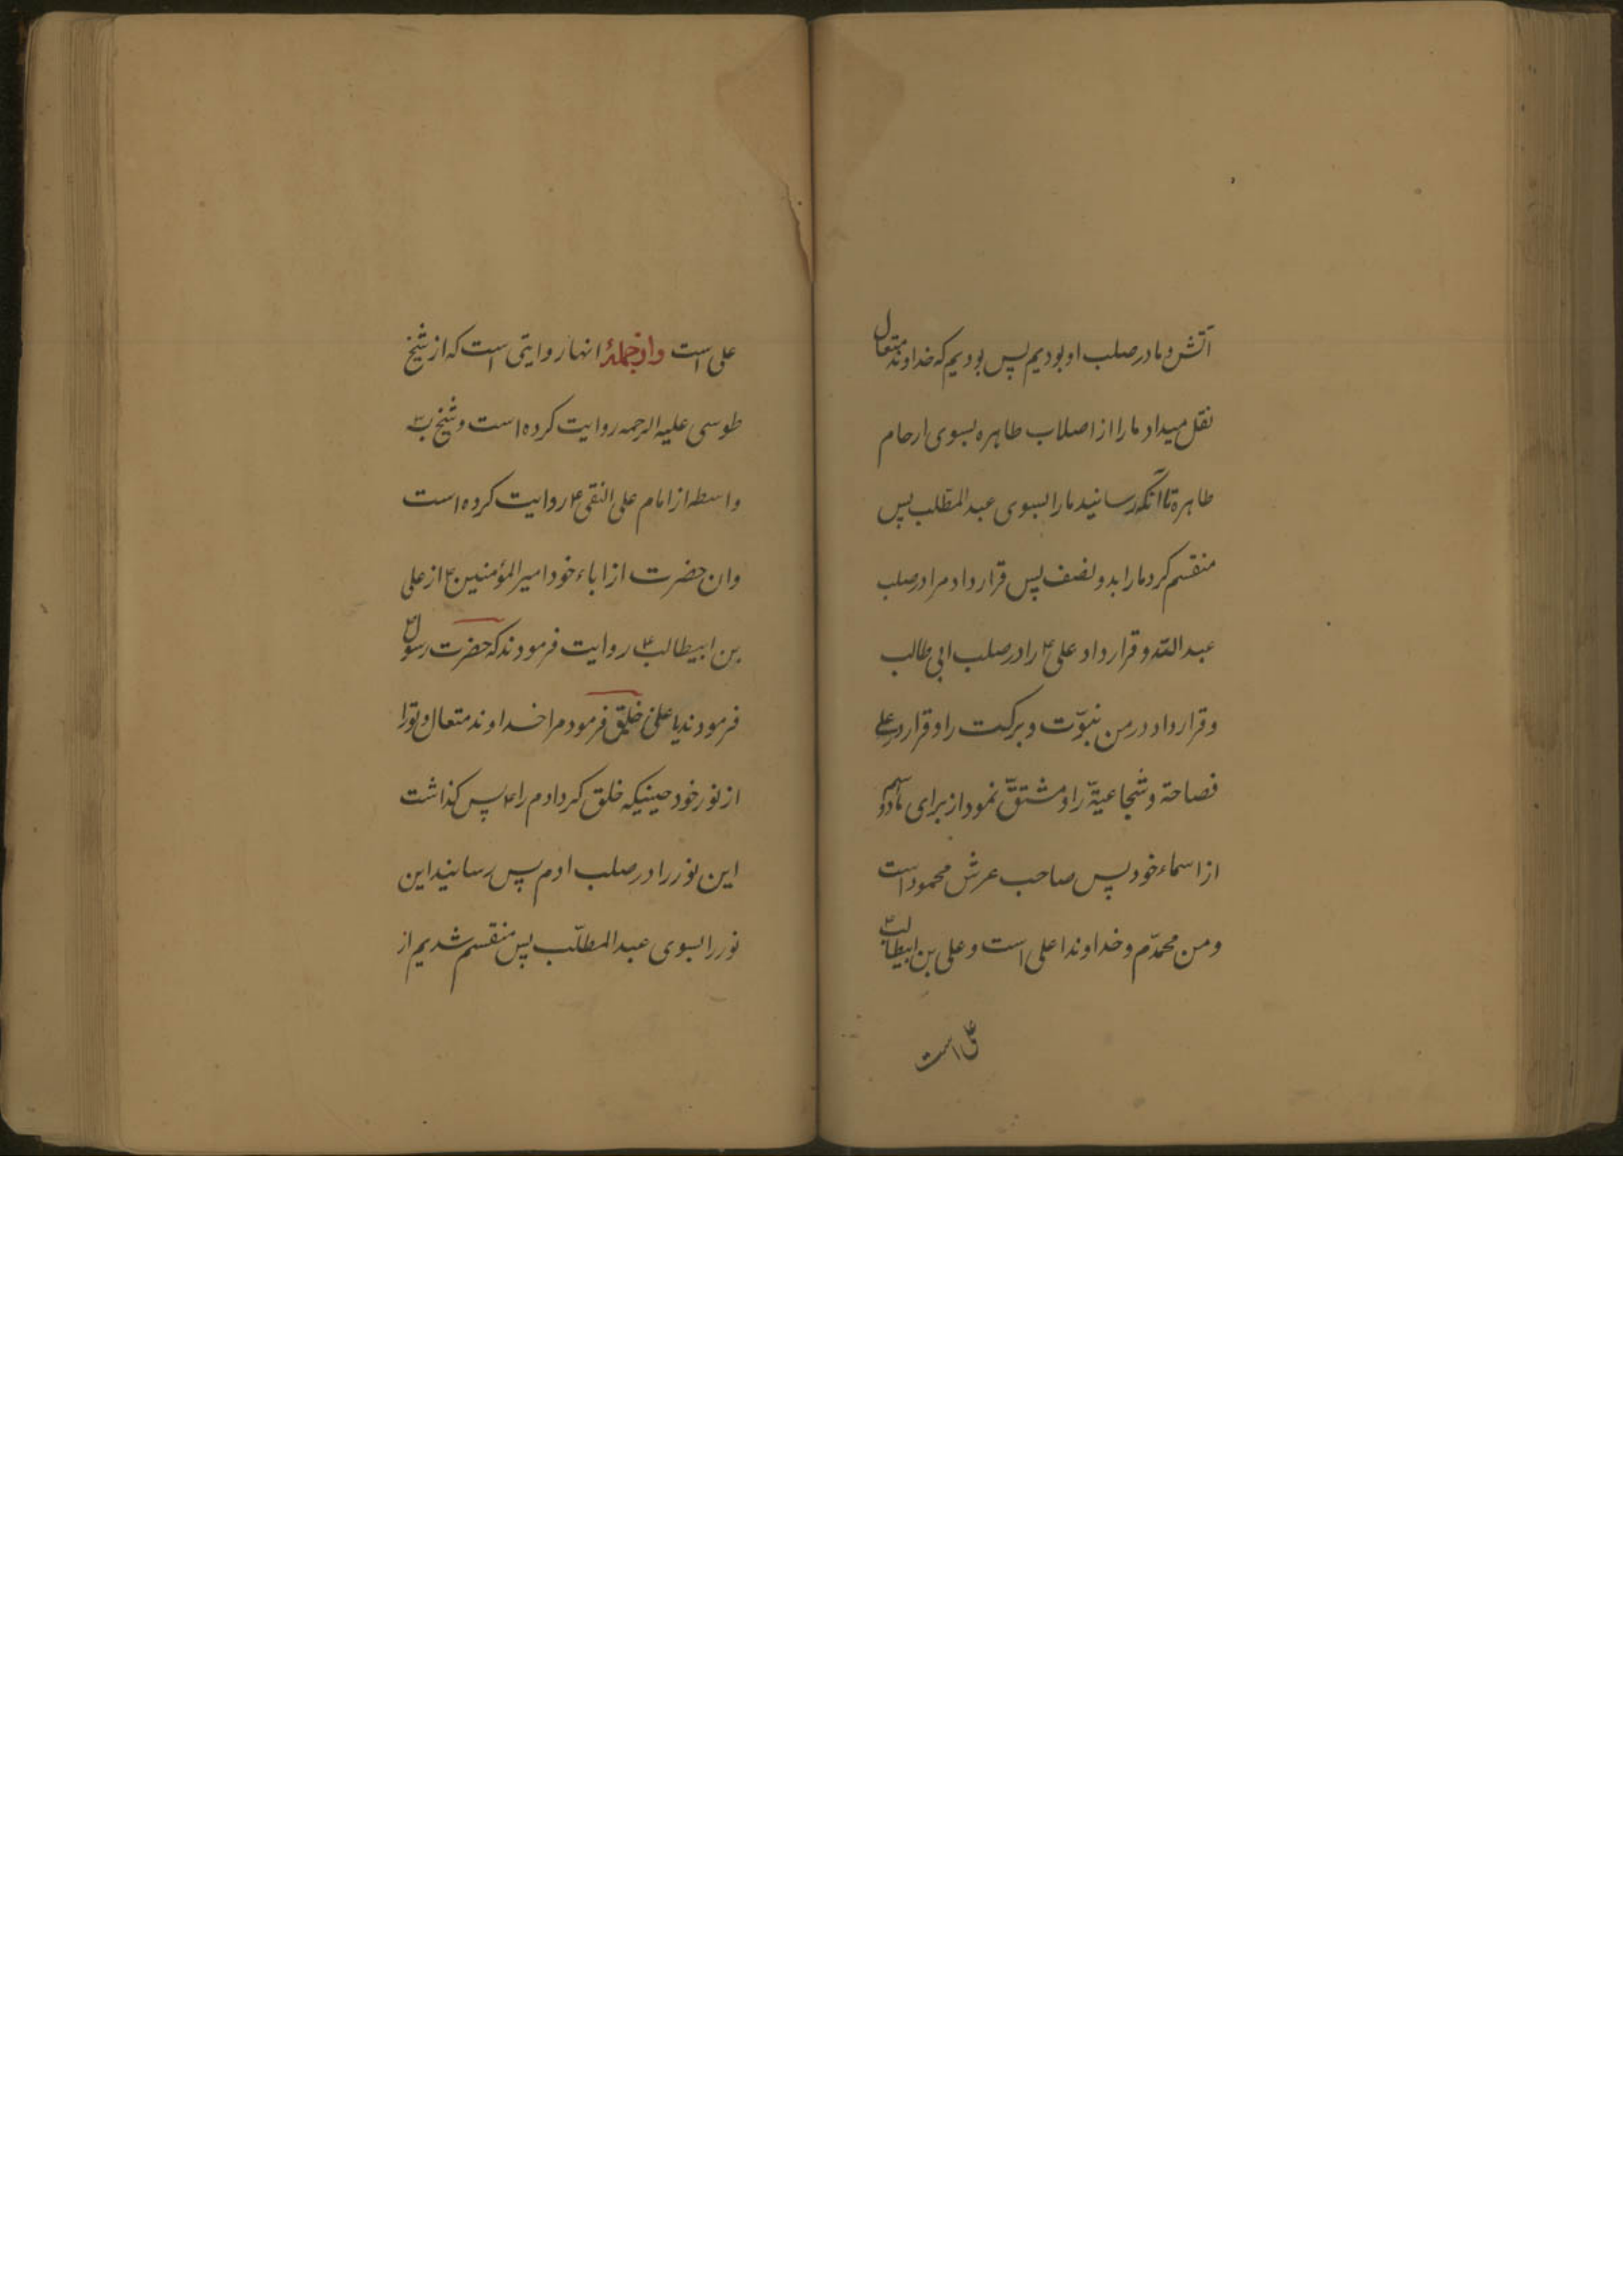 آتش و ما در صلب او بودیم پس بودیم که خداوند متعال
نقل میداد ما را از اصلاب طاهره بسوی ارحام
طاهره تا آنکه رسانید ما را بسوی عبد المطلب پس
منقسم کرد ما را بدو نصف پس قرار داد مرا در صلب
عبد الله و قرار داد علی ع را در صلب ابی طالب
و قرار داد در من نبوّت و برکت را و قرار در علی
فصاحة و شجاعیّة را و مشتقّ نمود از برای ما دو اسم
از اسماء خود پس صاحب عرش محمود است
و من محمّدم و خداوند اعلی است و علی بن ابیطالب ع
علی است
علی است و از جملهٔ انها روایتی است که از شیخ
طوسی علیه الرحمه روایت کرده است و شیخ بسه
واسطه از امام علی النقی ع روایت کرده است
و ان حضرت از اباء خود امیر المؤمنین ع از علی
بن ابیطالب ع روایت فرمودند که حضرت رسول
فرمودند یا علی خلق فرمود مرا خداوند متعال و تو را
از نور خود حینیکه خلق کرد ادم را ع پس کذاشت
این نور را در صلب ادم پس رسانید این
نور را بسوی عبد المطلّب پس منقسم شدیم از